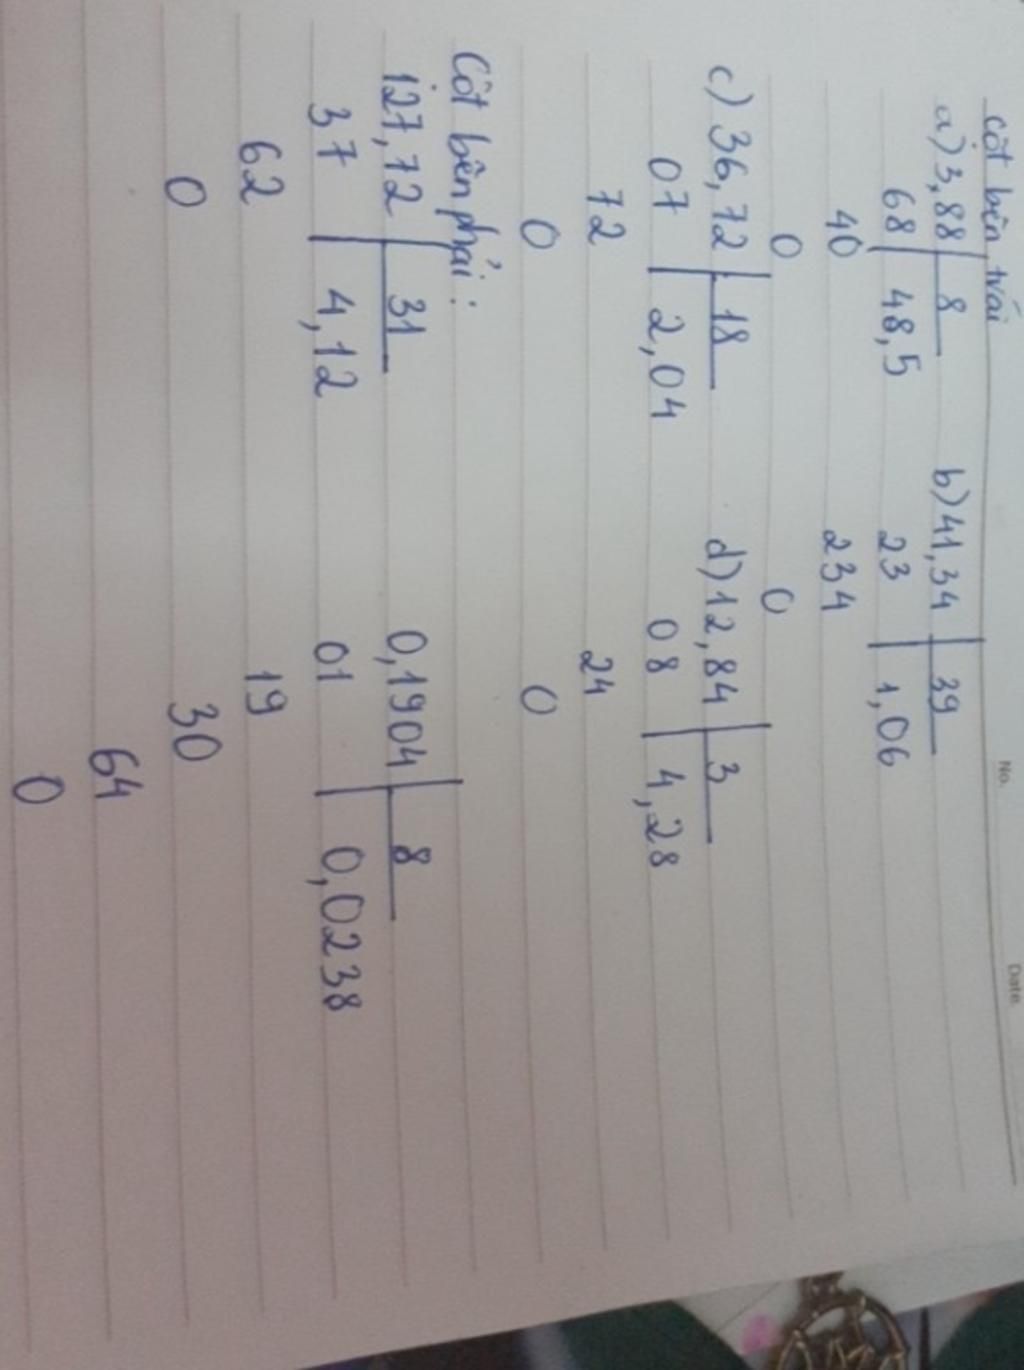 No. Date.
Cột bên trái
a) 3,88 8 b) 41,34 39
68 48,5 23 1,06
40 234
0 0
c) 36,72 18 d) 12,84 3
07 2,04 08 4,28
72 24
0 0
Cột bên phải:
127,72 31 0,1904 8
37 4,12 01 0,0238
62 19
0 30
64
0